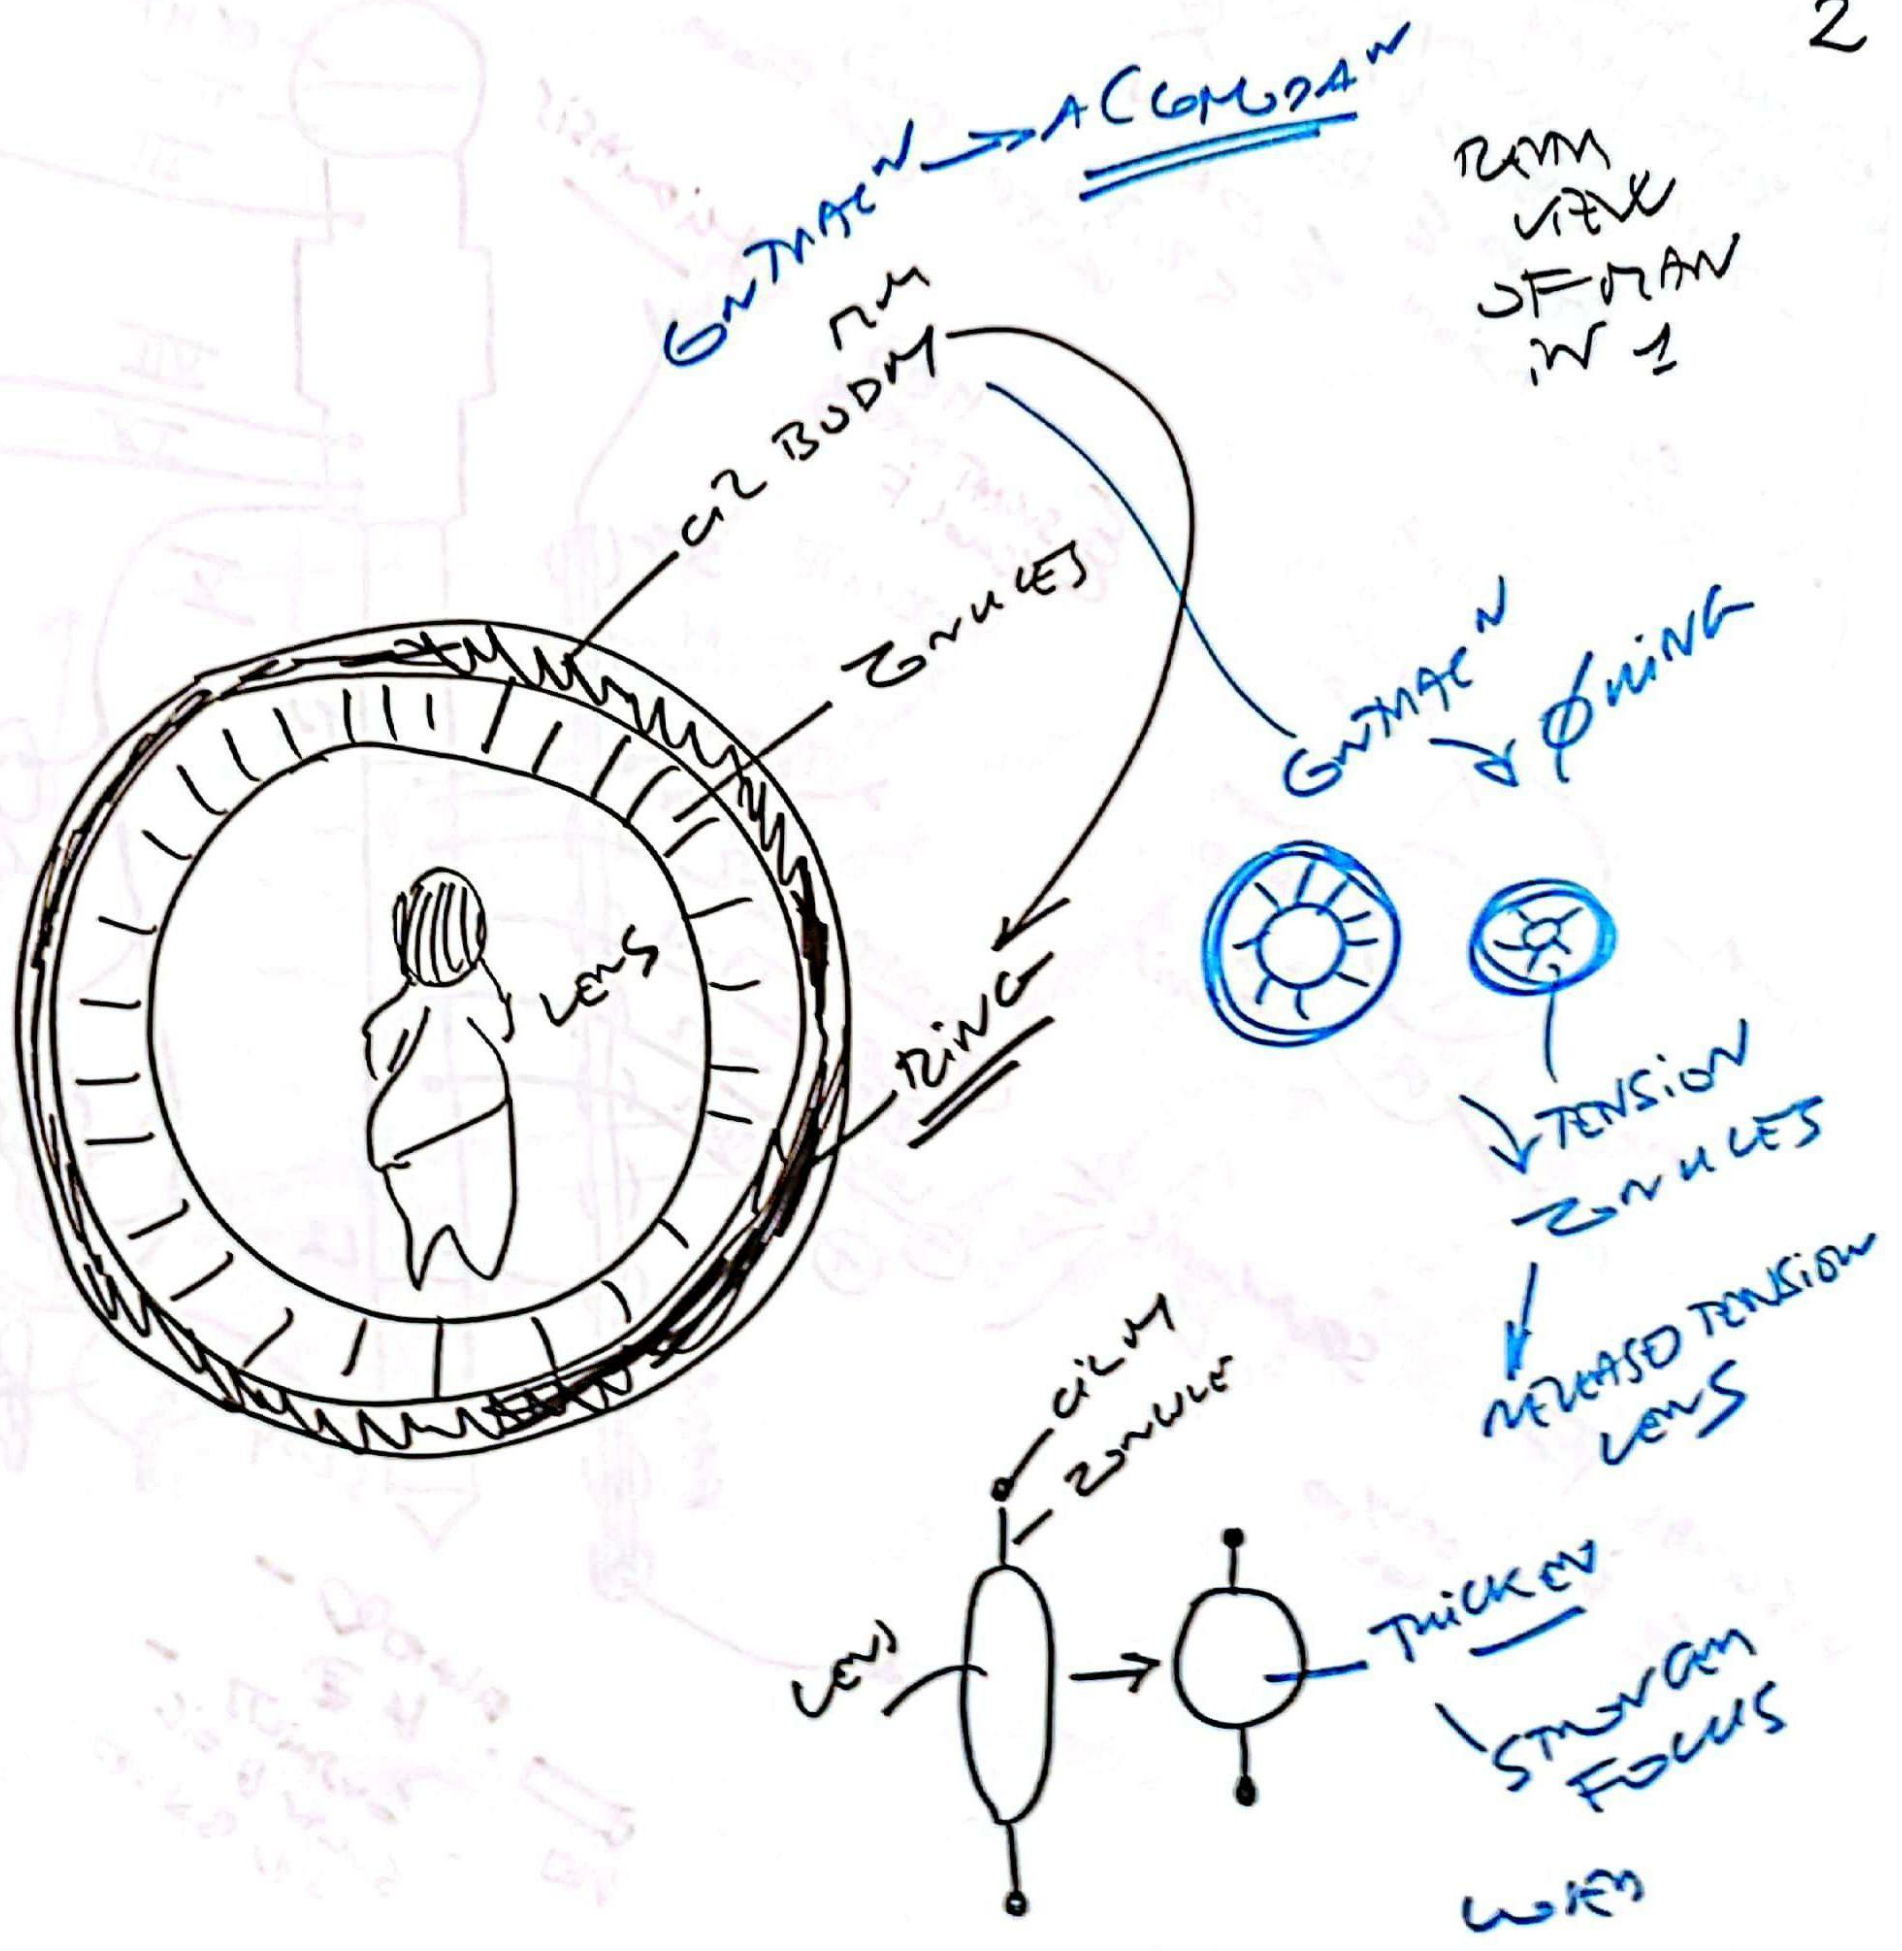 2
CONTRACN → ACCOMODAN
VIEW
OF MAN
IN 1
CIL BODY
ZONULES
LENS
RING
CONTRACN
RING
TENSION
ZONULES
RELEASED TENSION
LENS
CIL M
ZONULE
LENS
THICKER
STRONGER
FOCUS